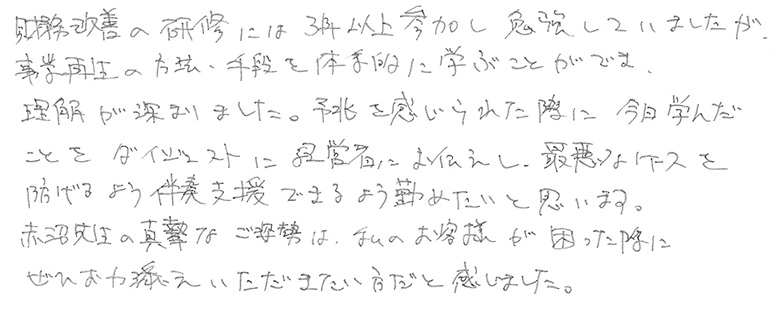 財務改善の研修には3年以上参加し勉強していましたが、
事業再生の方法、手段を体系的に学ぶことができ、
理解が深まりました。予兆を感じられた際に今日学んだ
ことをダイジェストに経営者にお伝えし、最悪なケースを
防げるよう伴奏支援できるよう勤めたいと思います。
赤沼先生の真摯なご姿勢は、私のお客様が困った際に
ぜひお力添えいただきたい方だと感じました。